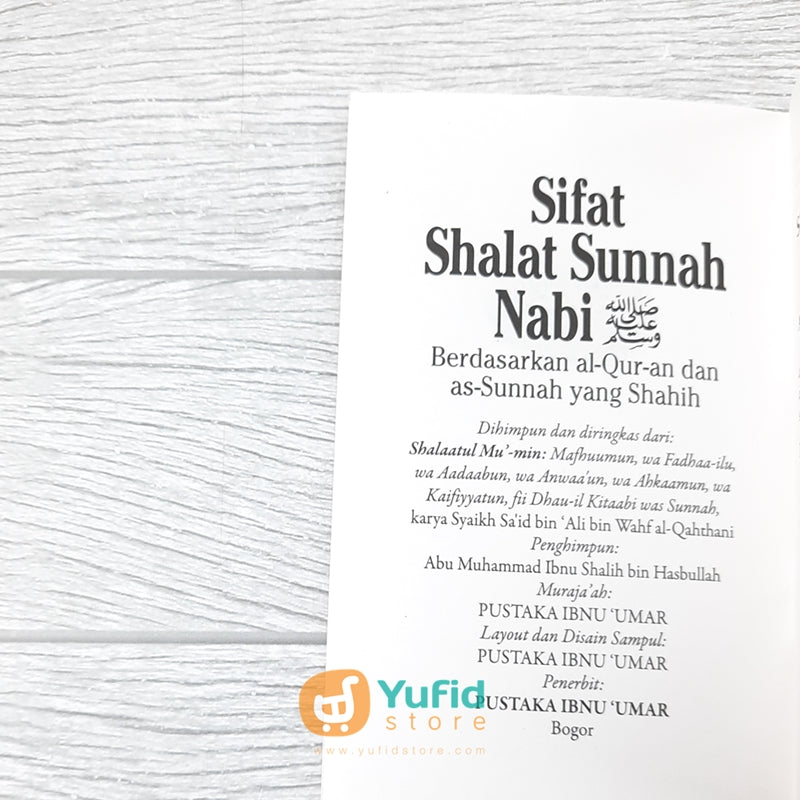 Sifat
Shalat Sunnah
Nabi ﷺ
Berdasarkan al-Qur-an dan
as-Sunnah yang Shahih
Dihimpun dan diringkas dari:
Shalaatul Mu’-min: Mafhuumun, wa Fadhaa-ilu,
wa Aadaabun, wa Anwaa'un, wa Ahkaamun, wa
Kaifiyyatun, fii Dhau-il Kitaabi was Sunnah,
karya Syaikh Sa'id bin ‘Ali bin Wahf al-Qahthani
Penghimpun:
Abu Muhammad Ibnu Shalih bin Hasbullah
Muraja’ah:
PUSTAKA IBNU ‘UMAR
Layout dan Disain Sampul:
PUSTAKA IBNU ‘UMAR
Penerbit:
PUSTAKA IBNU ‘UMAR
Bogor
Yufid
store
www.yufidstore.com